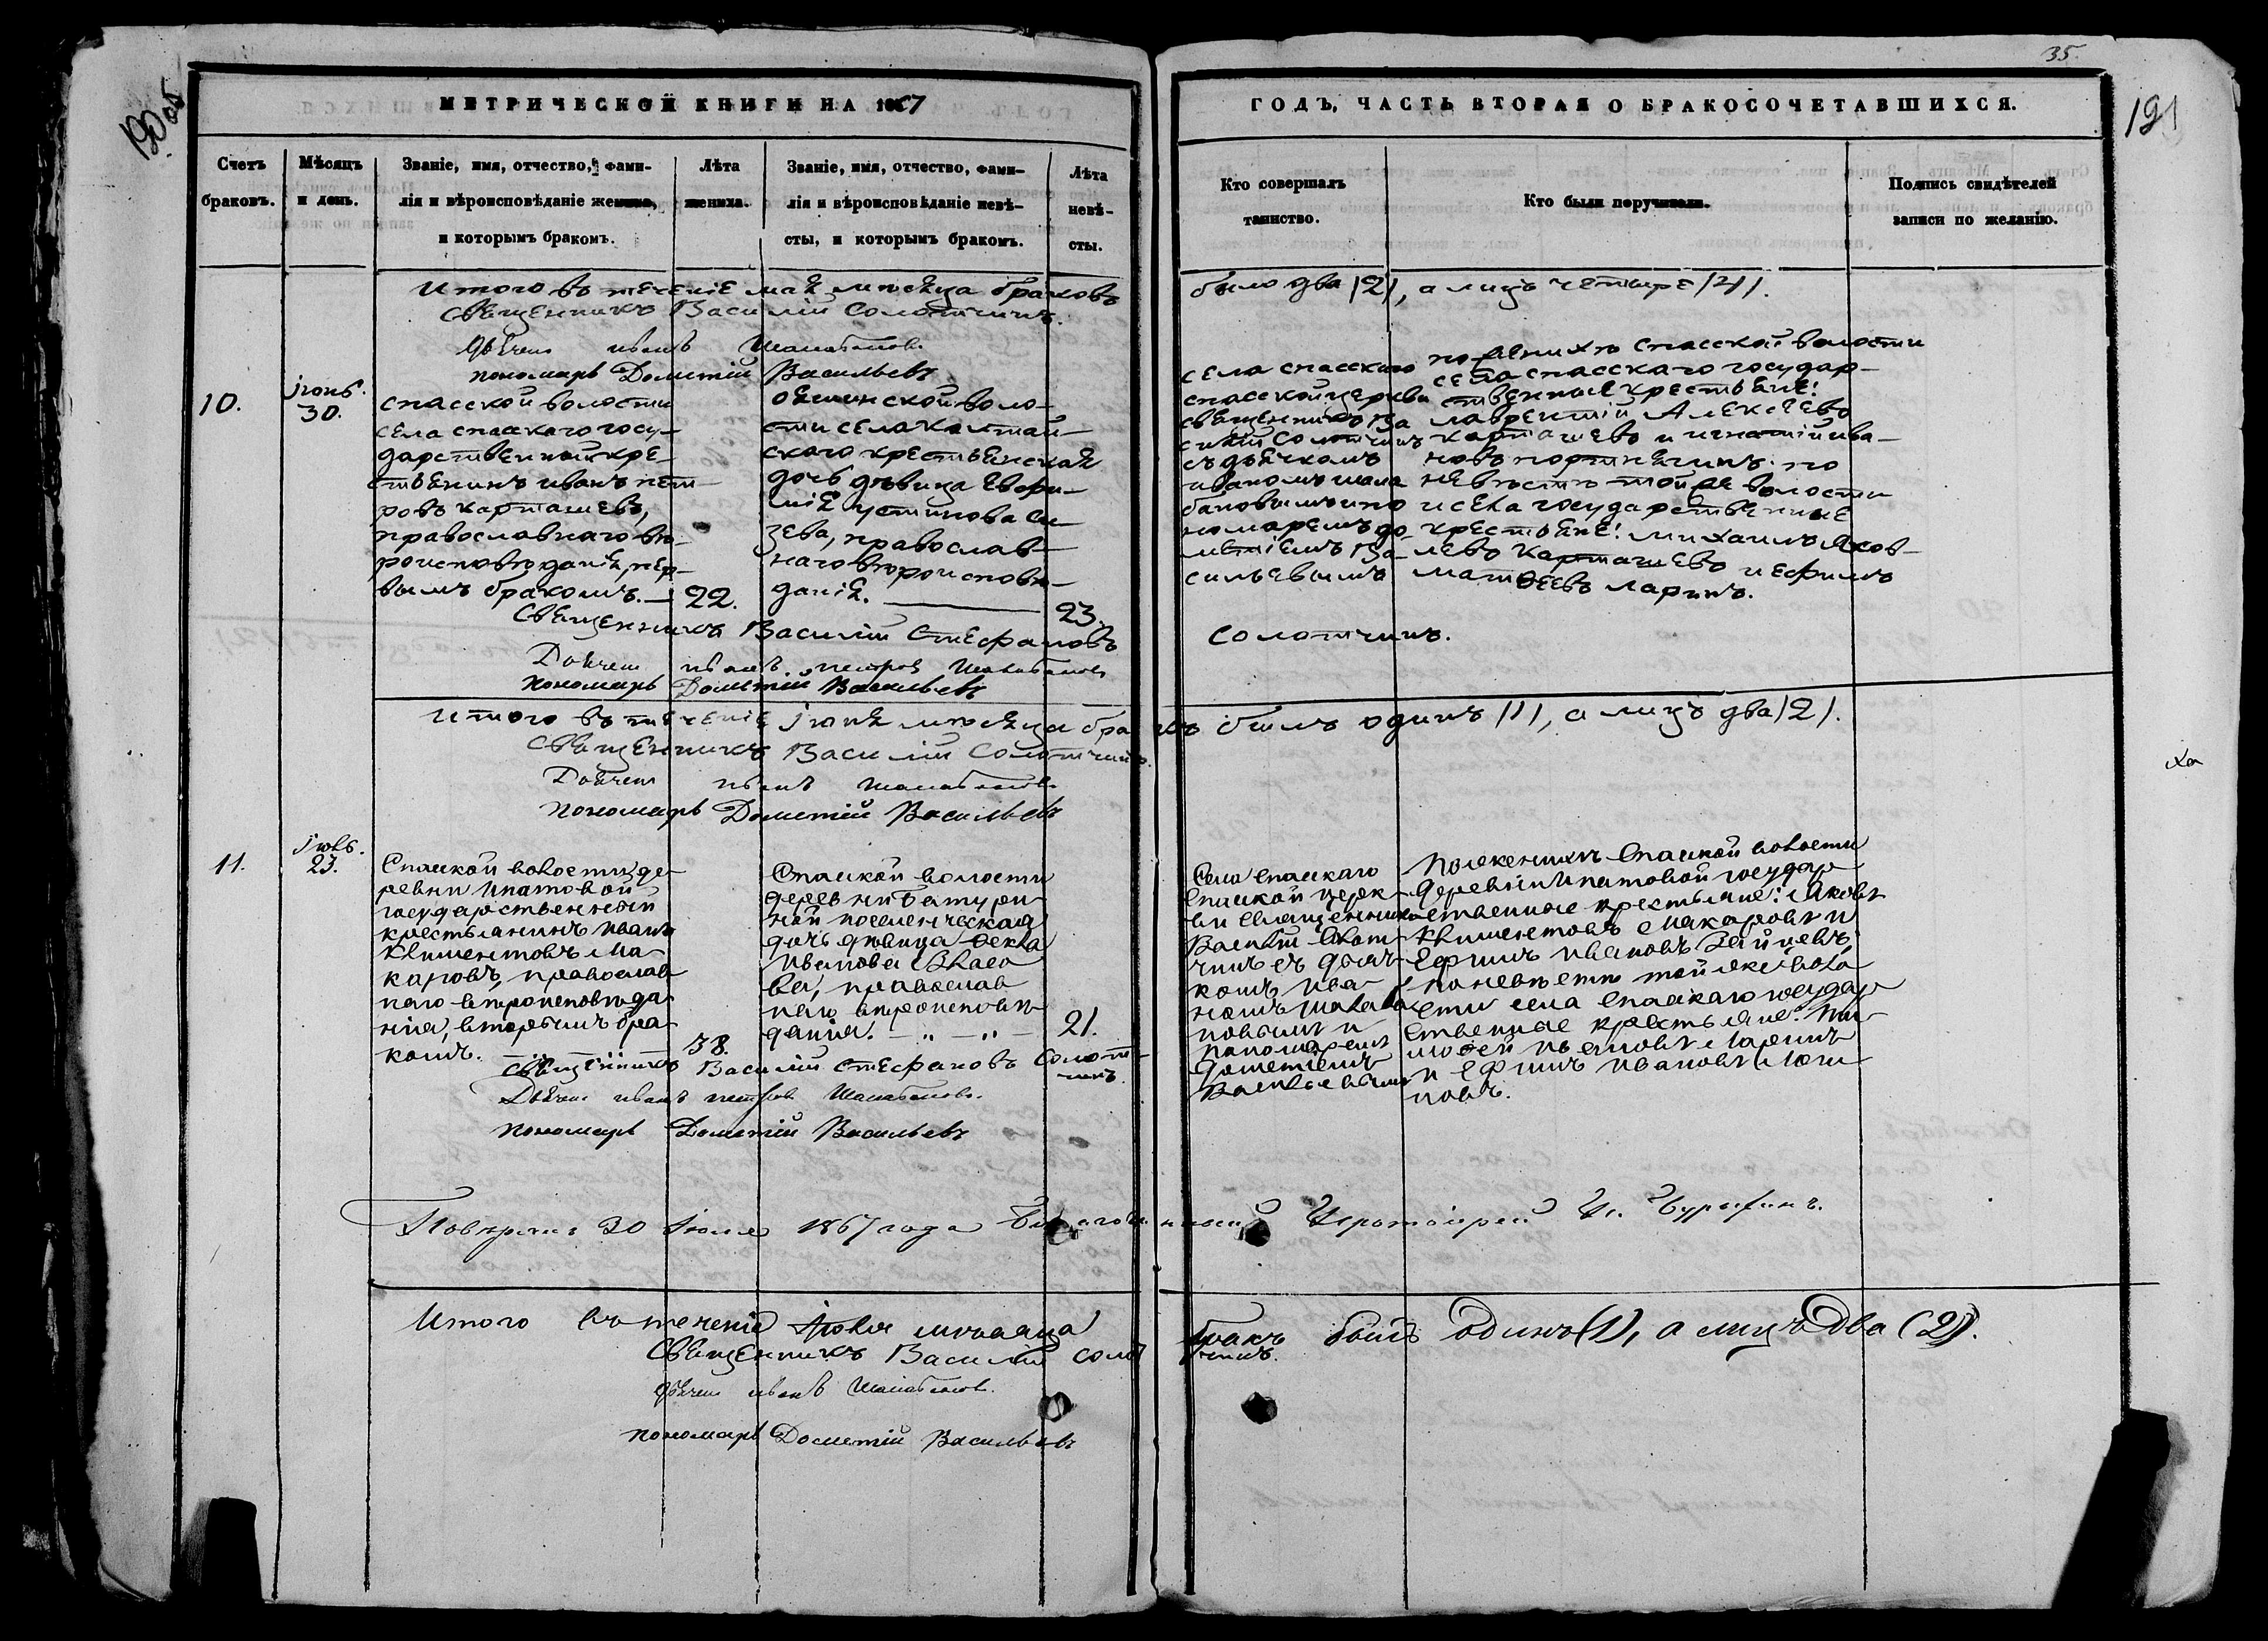 35.
190 об
191
МЕТРИЧЕСКОЙ КНИГИ НА 1867
ГОДЪ, ЧАСТЬ ВТОРАЯ О БРАКОСОЧЕТАВШИХСЯ.
Счетъ
браковъ.
Мѣсяцъ
и день.
Званіе, имя, отчество, фами-
лія и вѣроисповѣданіе жениха,
и которымъ бракомъ.
Лѣта
жениха.
Званіе, имя, отчество, фами-
лія и вѣроисповѣданіе невѣ-
сты, и которымъ бракомъ.
Лѣта
невѣ-
сты.
Кто совершалъ
таинство.
Кто были поручители.
Подпись свидѣтелей
записи по желанію.
Итого въ теченіе мая мѣсяца браковъ было два /2/, а лицъ четыре /4/.
Священникъ Василій Солотчинъ.
Дьячек иванъ Шалабанов
пономарь Дометій Васильевъ
10.
іюнь.
30.
спасской волости
села спасскаго госу-
дарственный кре-
стьянинъ иванъ пет-
ровъ карташевъ,
православнаго вѣ-
роисповѣданія, пер-
вымъ бракомъ. —
22.
ояшинской воло-
сти села
скаго крестьянская
дочь дѣвица евфи-
мія устинова си-
зева, православ-
наго вѣроисповѣ-
данія. —
23.
села спасскаго
спасской церкви
священникъ Ва
силій Солотчинъ
съ дьячкомъ
иваномъ шала
бановымъ и по
номаремъ до-
метіемъ Ва-
сильевымъ
по женихѣ спасской волости
села спасскаго государ-
ственные крестьяне:
лаврентій Алексѣевъ
карташевъ и игнатій ива-
новъ портнягинъ. по
невѣстѣ той же волости
и села государственные
крестьяне: михаилъ Яков-
левъ карташевъ и ефимъ
матвеевъ ларинъ.
Священникъ Василій Стефановъ Солотчинъ.
Дьячек иванъ петров Шалабанов
пономарь Дометій Васильевъ
итого въ теченіе іюня мѣсяца бракъ былъ одинъ /1/, а лицъ два /2/.
Священникъ Василій Солотчинъ.
Дьячек иванъ шалабанов
пономарь Дометій Васильевъ
11.
іюль.
23.
Спаской волости де-
ревни Ипатовой
государственный
крестьянинъ Иванъ
Климентовъ Ма-
каровъ, православ-
наго вѣроисповѣда-
нія, вторымъ бра-
комъ.
38.
Спаской волости
деревни Батури-
ной поселенческая
дочь дѣвица Ѳекла
Иванова Власо-
ва, православ-
наго вѣроисповѣ-
данія. — „ — „ —
21.
Села Спаскаго
Спаской церк-
ви священникъ
Василій Солот-
чинъ съ дьяч-
комъ Ива-
номъ Шалаба-
новымъ и
пономаремъ
Дометіемъ
Васильевымъ
По женихѣ Спаской волости
деревни Ипатовой государ-
ственные крестьяне: Яковъ
Климентовъ Макаровъ и
Ефимъ Ивановъ Зайцевъ,
по невѣстѣ той же воло-
сти села Спаскаго государ-
ственные крестьяне: Ти-
моѳей Ивановъ Ларинъ
и Ефимъ Ивановъ
новъ.
Священникъ Василій Стефановъ Солот-
чинъ.
Дьячек иванъ петров Шалабанов.
пономарь Дометій Васильевъ
30 Іюля 1867 года Благочинный Протоіерей
Итого въ теченіе Іюля мѣсяца бракъ былъ одинъ (1), а лицъ два (2).
Священникъ Василій Солотчинъ.
Дьячек иванъ Шалабанов.
пономарь Дометій Васильевъ